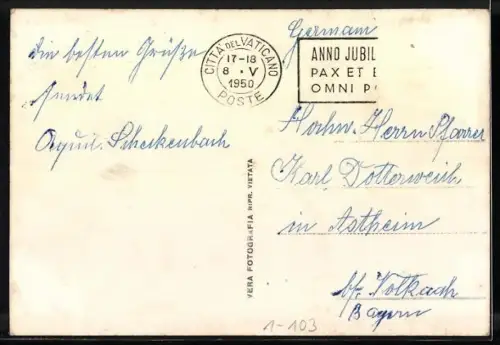 die besten Grüße
sendet
Aquil. Scheckenbach
CITTÀ DEL VATICANO
17-18
8 · V
1950
POSTE
ANNO JUBIL
PAX ET
OMNI P
VERA FOTOGRAFIA RIPR. VIETATA
German
Hochw. Herrn Pfarrer
Karl Dotterweich
in Astheim
b/. Volkach
Bayern
1-103